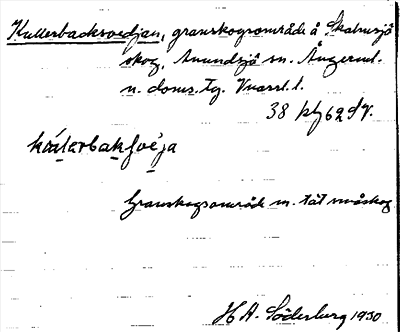 Kullerbacksvedjan, granskogsområde å Skalmsjö
skog, Anundsjö sn. Ångerml.
n. doms. Tg. Vnorrl. l.
38
Granskogsområde m. tät småskog
H A. Söderberg 1930